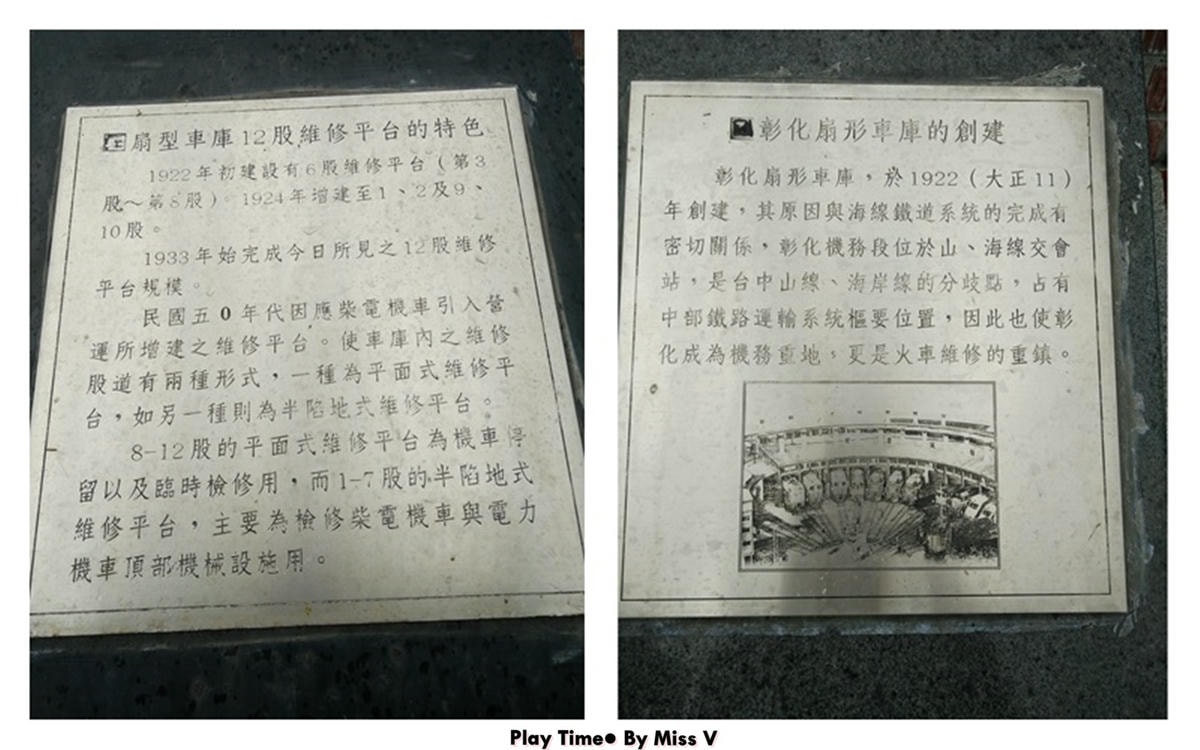 扇型車庫12股維修平台的特色
1922年初建設有6股維修平台（第3
股～第8股）。1924年增建至1、2及9、
10股。
1933年始完成今日所見之12股維修
平台規模。
民國五0年代因應柴電機車引入營
運所增建之維修平台。使車庫內之維修
股道有兩種形式，一種為平面式維修平
台，如另一種則為半陷地式維修平台。
8-12股的平面式維修平台為機車停
留以及臨時檢修用，而1-7股的半陷地式
維修平台，主要為檢修柴電機車與電力
機車頂部機械設施用。
彰化扇形車庫的創建
彰化扇形車庫，於1922（大正11）
年創建，其原因與海線鐵道系統的完成有
密切關係，彰化機務段位於山、海線交會
站，是台中山線、海岸線的分歧點，占有
中部鐵路運輸系統樞要位置，因此也使彰
化成為機務重地，更是火車維修的重鎮。
Play Time● By Miss V